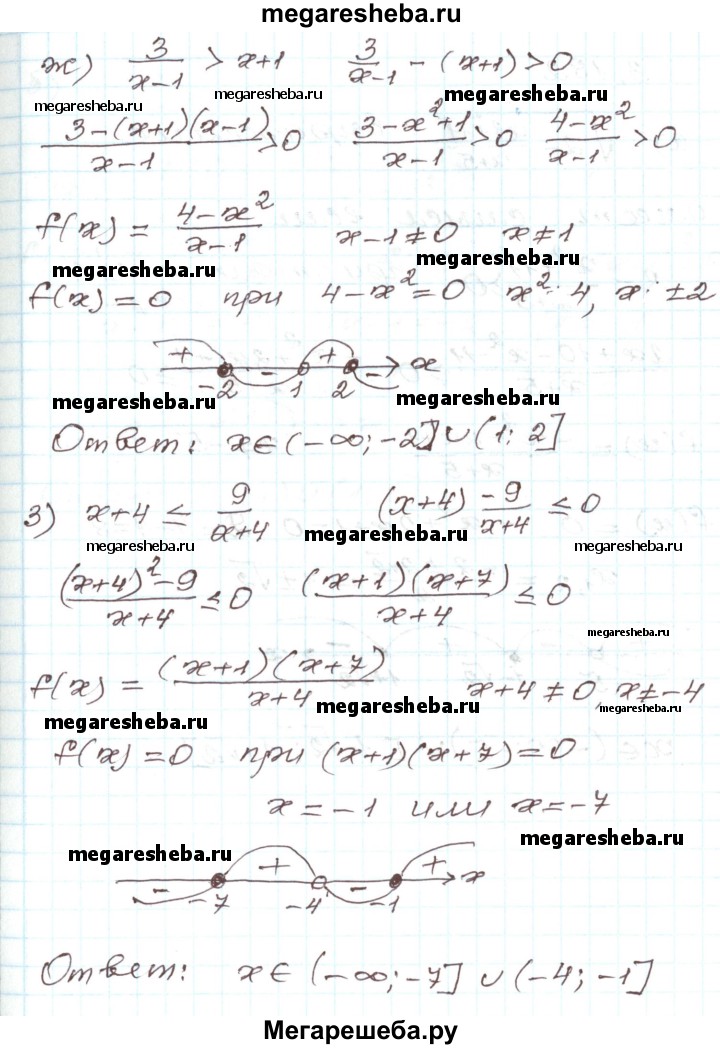 megaresheba.ru
ж) 3/(x-1) > x+1    3/(x-1) - (x+1) > 0
megaresheba.ru megaresheba.ru megaresheba.ru
(3-(x+1)(x-1))/(x-1) > 0    (3-x²+1)/(x-1) > 0    (4-x²)/(x-1) > 0
f(x) = (4-x²)/(x-1)    x-1≠0    x≠1
megaresheba.ru megaresheba.ru
f(x)=0 при 4-x²=0    x²=4, x=±2
+ - + x
-2 1 2
megaresheba.ru megaresheba.ru
Ответ: x∈(-∞;-2]∪(1;2]
з) x+4 ≤ 9/(x+4)    (x+4) -9/(x+4) ≤ 0
megaresheba.ru megaresheba.ru megaresheba.ru
((x+4)²-9)/(x+4) ≤ 0    ((x+1)(x+7))/(x+4) ≤ 0
megaresheba.ru
f(x) = ((x+1)(x+7))/(x+4)    x+4≠0, x≠-4
megaresheba.ru megaresheba.ru megaresheba.ru
f(x)=0 при (x+1)(x+7)=0
x=-1 или x=-7
megaresheba.ru megaresheba.ru
- + - + x
-7 -4 -1
Ответ: x∈(-∞;-7]∪(-4;-1]
Мегарешеба.ру